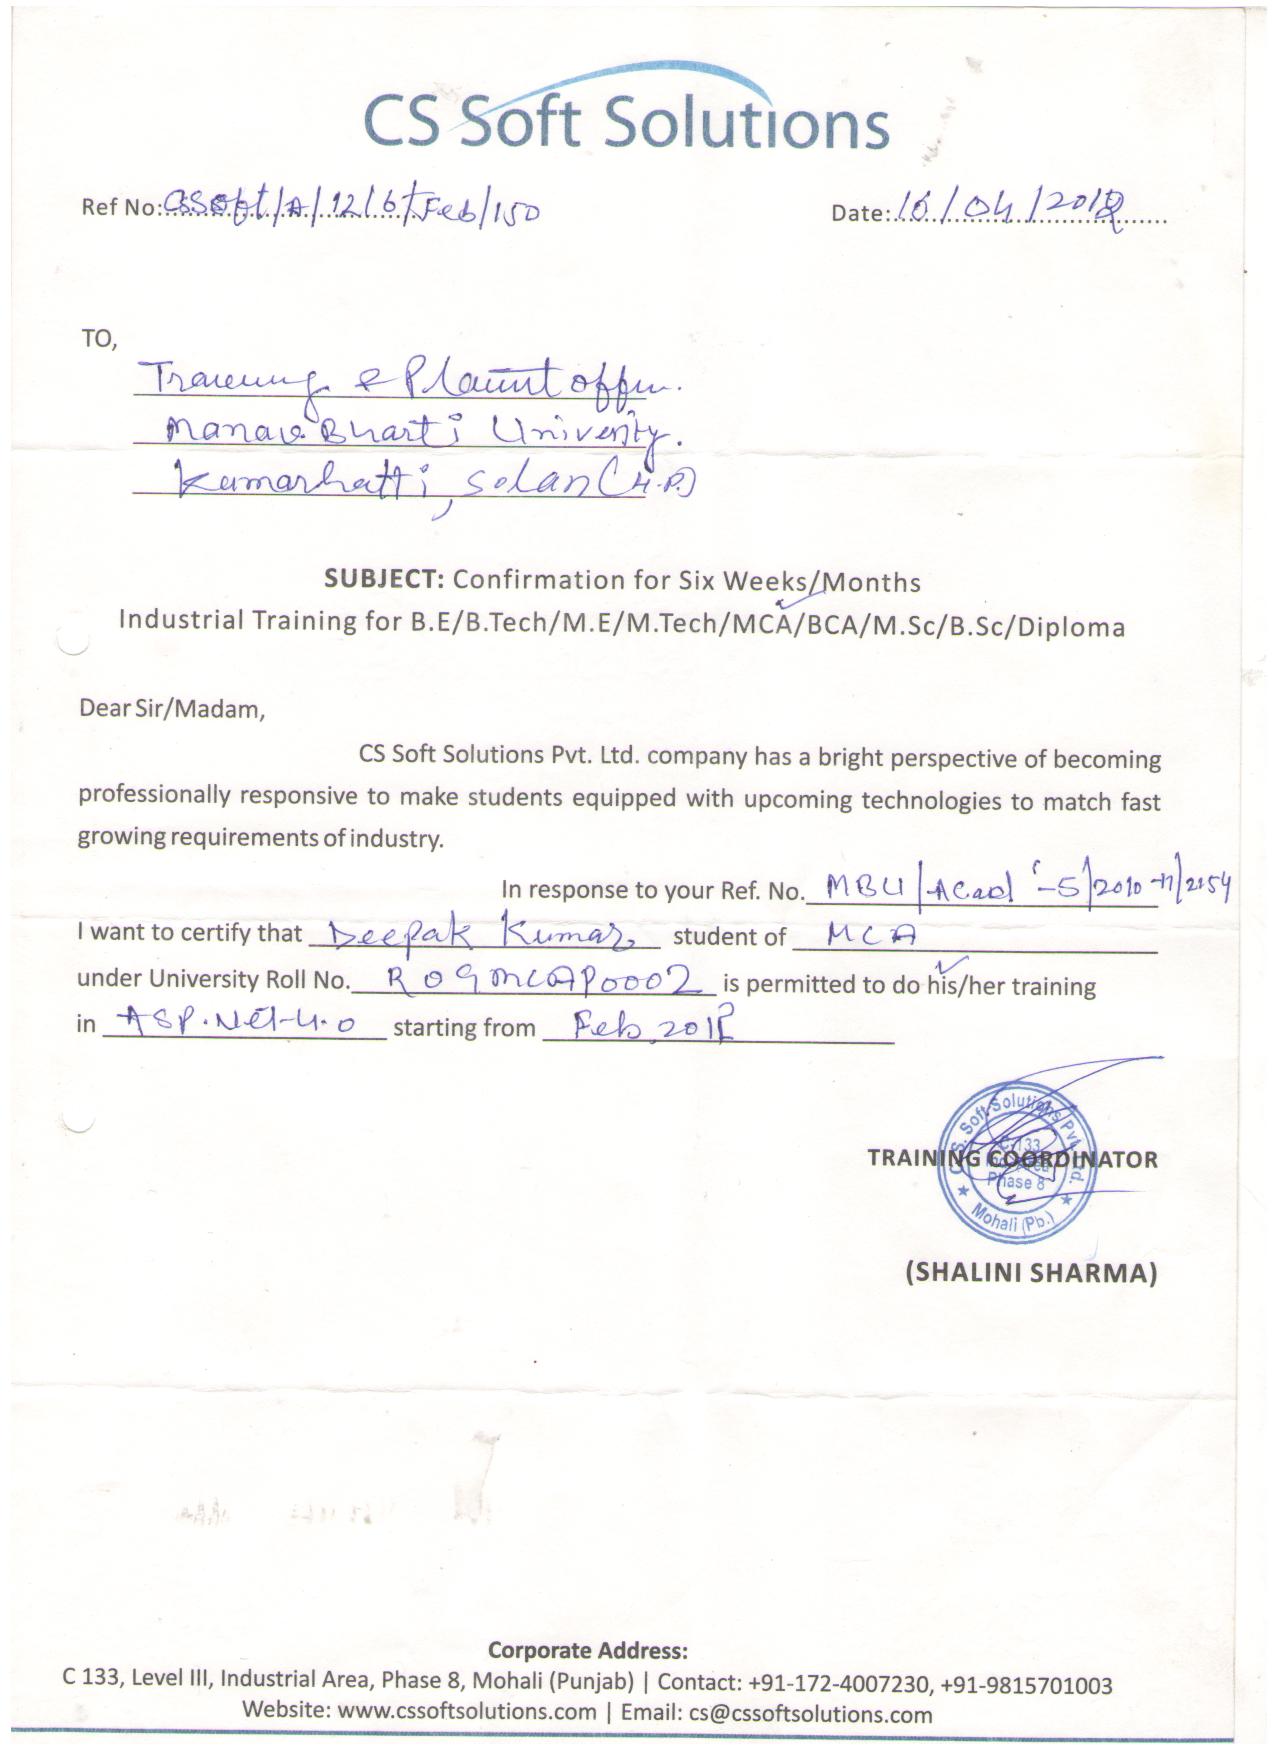 CS Soft Solutions
Ref No: CSSoft/A/12/6/Feb/150
Date: 16/04/2012
TO,
Training & Placement officer.
Manav Bharti University.
Kumarhatti, Solan (H.P.)
SUBJECT: Confirmation for Six Weeks/Months
Industrial Training for B.E/B.Tech/M.E/M.Tech/MCA/BCA/M.Sc/B.Sc/Diploma
Dear Sir/Madam,
CS Soft Solutions Pvt. Ltd. company has a bright perspective of becoming
professionally responsive to make students equipped with upcoming technologies to match fast
growing requirements of industry.
In response to your Ref. No. MBU/Acad-5/2010-11/2154
I want to certify that Deepak Kumar student of MCA
under University Roll No. R09MCAP0002 is permitted to do his/her training
in ASP.Net-4.0 starting from Feb, 2012
C.S. Soft Solutions Pvt. Ltd.
C-133
Ind. Area
Phase 8
Mohali (Pb.)
TRAINING COORDINATOR
(SHALINI SHARMA)
Corporate Address:
C 133, Level III, Industrial Area, Phase 8, Mohali (Punjab) | Contact: +91-172-4007230, +91-9815701003
Website: www.cssoftsolutions.com | Email: cs@cssoftsolutions.com